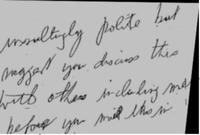 insultingly polite but
suggest you discuss this
with others including me
before you this in